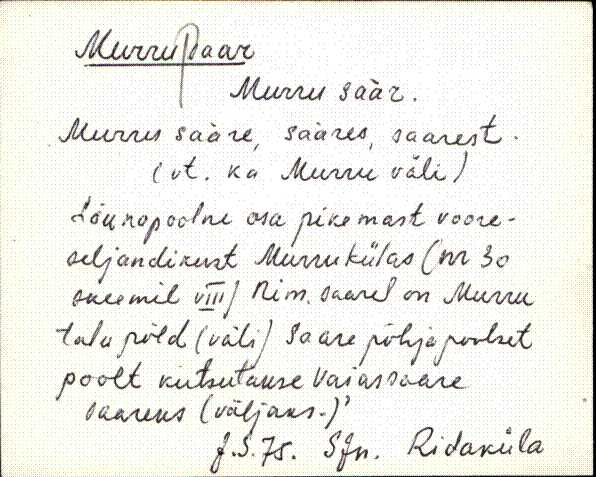 Murru saar
Murru säär.
Murru sääre, sääres, saarest.
(vt. ka Murru väli)
Lõunapoolne osa pikemast voore-
seljandikust Murrukülas (nr 30
skeemil VIII) Nim. saarel on Murru
talu põld (väli) Saare põhjapoolset
poolt kutsutakse Vaiassaare
saareks (väljaks.)
J.S.75. Sjn. Ridaküla